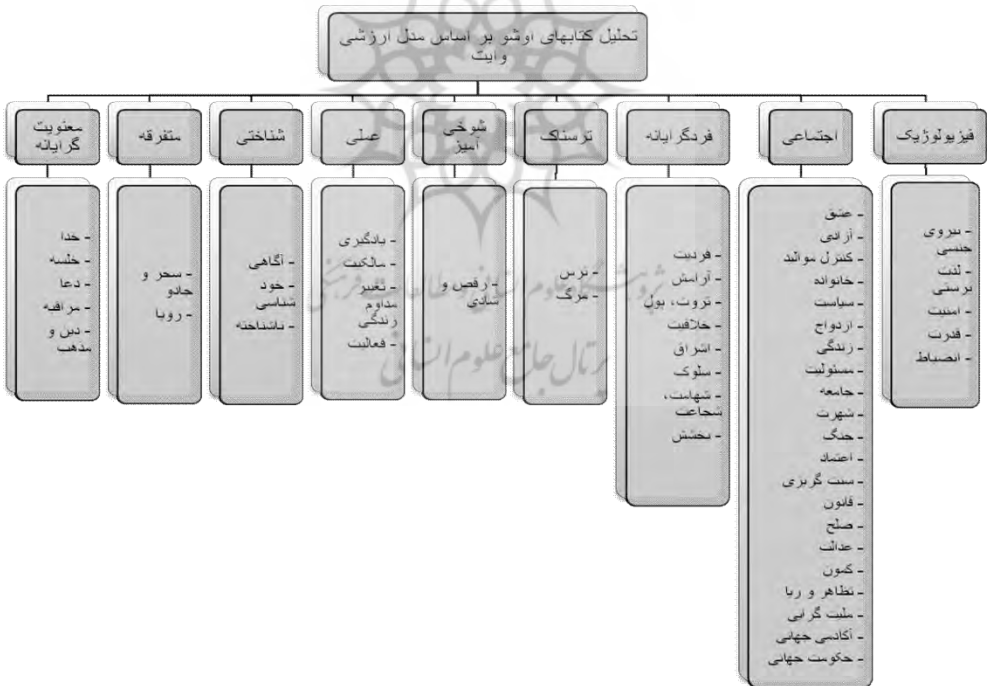 تحلیل کتابهای اوشو بر اساس مدل ارزشی
وایت
فیزیولوژیک
- نیروی
جنسی
- لذت
پرستی
- امنیت
- قدرت
- انضباط
اجتماعی
- عشق
- آزادی
- کنترل موالید
- خانواده
- سیاست
- ازدواج
- زندگی
- مسئولیت
- جامعه
- شهرت
- جنگ
- اعتماد
- سنت گریزی
- قانون
- صلح
- عدالت
- کمون
- تظاهر و ریا
- ملیت گرایی
- آکادمی جهانی
- حکومت جهانی
فردگرایانه
- فردیت
- آرامش
- ثروت، پول
- خلاقیت
- اشراق
- سلوک
- شهامت،
شجاعت
- بخشش
ترسناک
- ترس
- مرگ
شوخی
آمیز
- رقص و
شادی
عملی
- یادگیری
- مالکیت
- تغییر
مداوم
زندگی
- فعالیت
شناختی
- آگاهی
- خود
شناسی
- ناشناخته
متفرقه
- سحر و
جادو
- رویا
معنویت
گرایانه
- خدا
- خلسه
- دعا
- مراقبه
- دین و
مذهب
پژوهشگاه علوم انسانی و مطالعات فرهنگی
پرتال جامع علوم انسانی